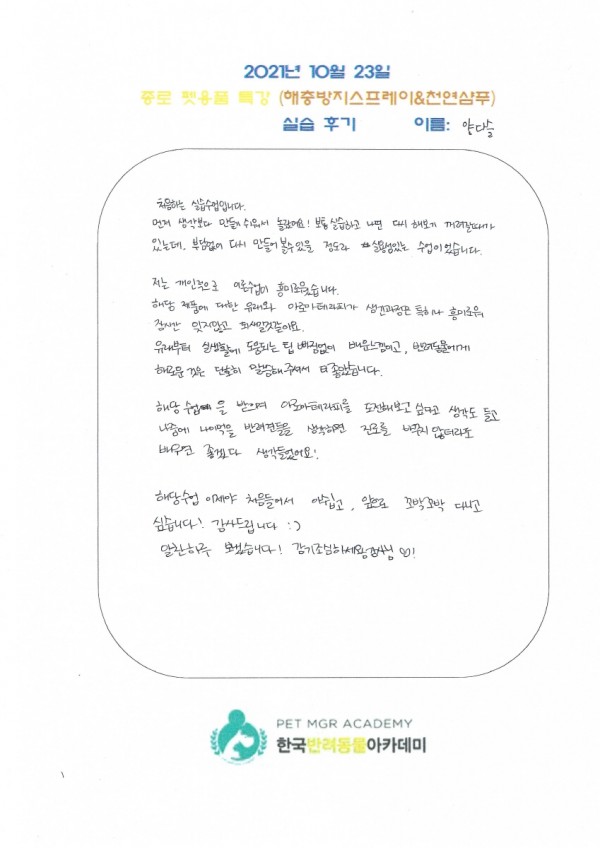 2021년 10월 23일
종로 펫용품 특강 (해충방지스프레이&천연샴푸)
실습 후기 이름: 양다슬
처음하는 실습수업입니다.
먼저 생각보다 만들기 쉬워서 놀랐어요! 보통 실습하고 나면 다시 해보기 꺼려질때가
있는데, 부담없이 다시 만들어 볼수있을 정도라 실용성있는 수업이었습니다.
저는 개인적으로 이론수업이 흥미로웠습니다.
해당 제품에 대한 유래와 아로마테라피가 생긴과정은 특히나 흥미로워
장시간 잊지않고 되새길것같아요.
유래부터 실생활에 도움되는 팁 빠짐없이 배운느낌이고, 반려동물에게
해로운 것은 단호히 말씀해주셔서 더 좋았습니다.
해당 수업을 받으며 아로마테라피를 도전해보고 싶다고 생각도 들고
나중에 나이먹을 반려견들을 생각하면 진로를 바꾸지 않더라도
배우면 좋겠다 생각들었어요!
해당수업 이제야 처음들어서 아쉽고, 앞으로 꼬박꼬박 다니고
싶습니다! 감사드립니다 :)
알찬하루 보냈습니다! 감기조심하세요 강사님 ♡!
PET MGR ACADEMY
한국반려동물아카데미